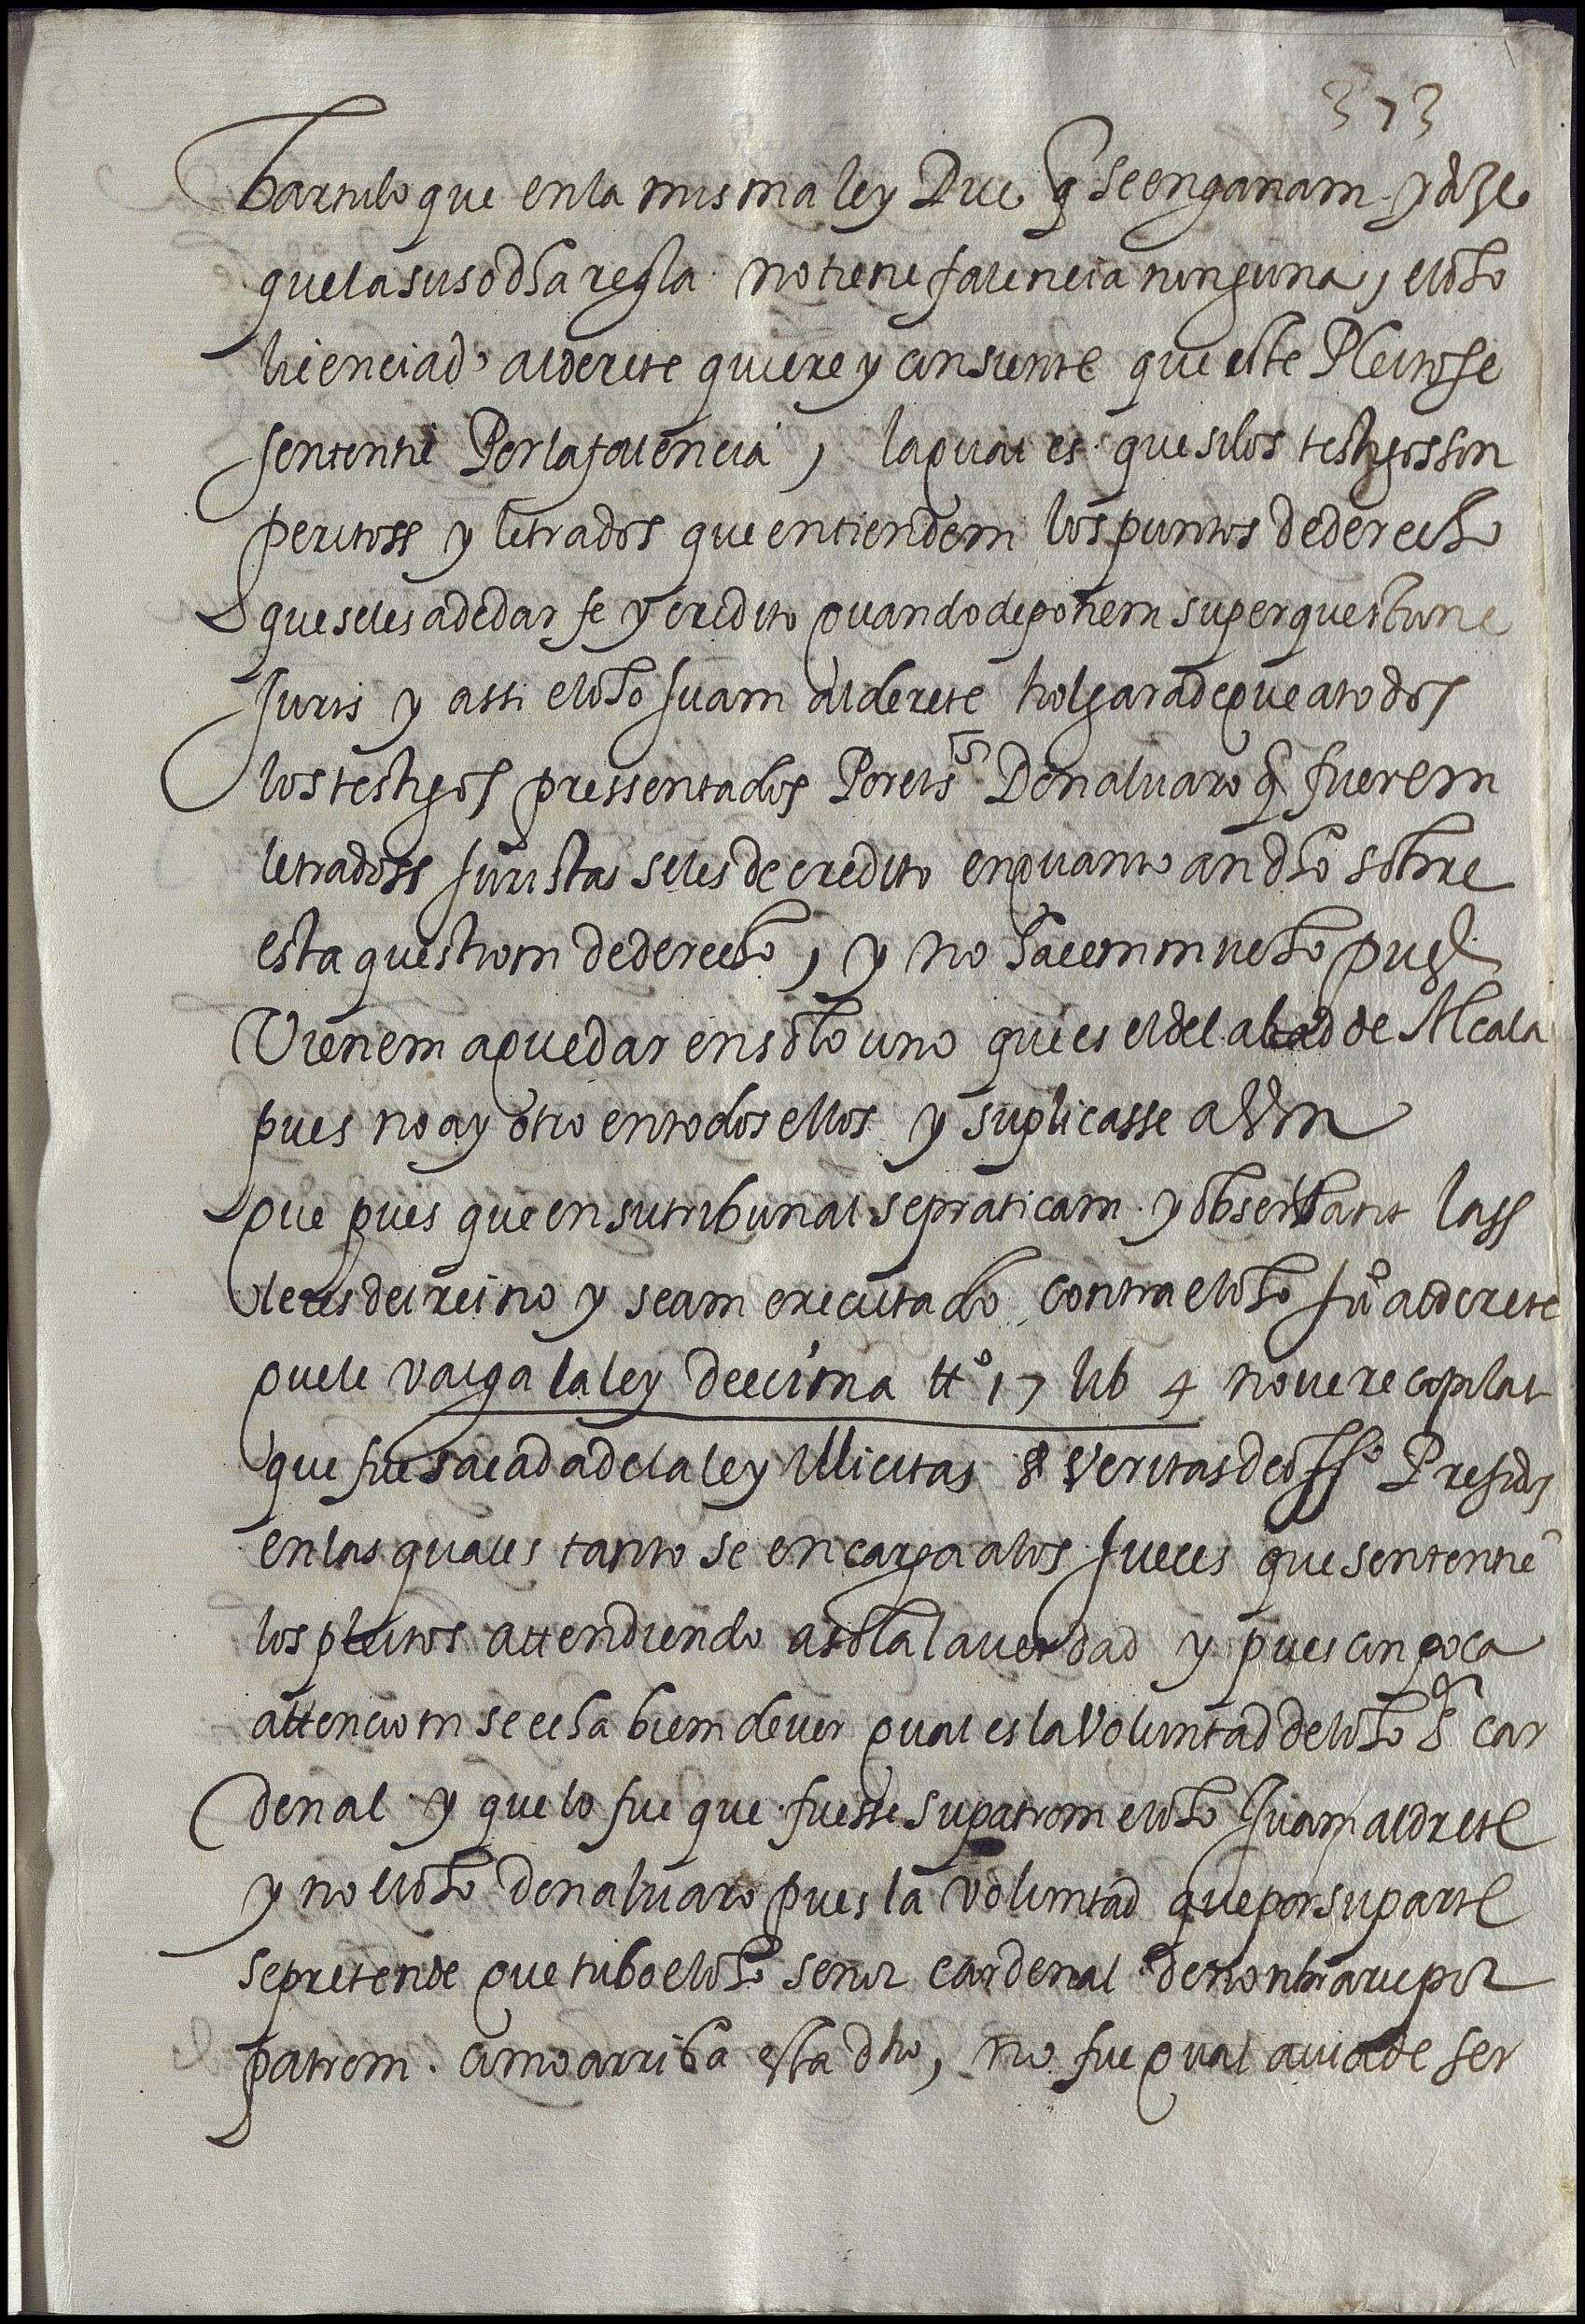 373
bartulo que en la misma ley Dice q se enganam y dize
que la susodha regla no tiene falencia ninguna, el dho
licenciado alderete quiere y consiente que este Pleito se
sententie Por la falencia, la qual es que si los testigos son
peritoss y letrados que entiendem los puntos de derecho
que se les a de dar fe y credito quando deponem super questione
Juris y assi el dho Juam alderete holgara de que a todos
los testigos pressentados Por el s.r Don aluaro q fuerem
letradoss Juristas se les de credito en quanto an dho sobre
esta questiom de derecho, y no hacem mucho pues
Vienem a quedar en solo uno que es el del abad de Alcala
pues no ay otro en todos ellos y suplicasse a V m
que pues que en su tribunal se praticam y obserbant lass
leies del reino y seam executado contra el dho Ju.o alderete
que le valga la ley decima tt.o 17 lib 4 noue recopilat
que fue sacada de la ley Illicitas § Veritas de off.o Presidis
en las quales tanto se encarga a los Jueces que sententie
los pleitos attendiendo a sola la uerdad y pues con poca
attenciom se echa biem de uer qual es la Voluntad del dho s.r car
denal y que lo fue que fuesse su patrom el dho Juam aldrete
y no el dho don aluaro pues la voluntad que por su parte
se pretende que tubo el dho senor cardenal de nonbrarle por
patrom. como arriba esta dho, no fue qual auia de ser